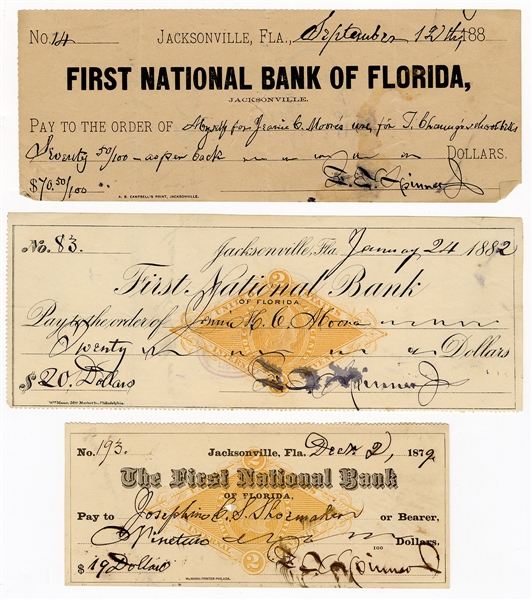 No. 14 JACKSONVILLE, FLA., September 12th, 188
FIRST NATIONAL BANK OF FLORIDA,
JACKSONVILLE.
PAY TO THE ORDER OF Myself for Jennie C. Moore's use, for T.
Seventy 50/100 - as per back DOLLARS.
$70.50/100 Spinner
A. B. CAMPBELL'S PRINT, JACKSONVILLE.
No. 83. Jacksonville, Fla. January 24 1882
First National Bank
OF FLORIDA.
Pay to the order of Jennie H. C. Moore
Twenty Dollars
$20. Dollars Spinner
Philadelphia.
No. 193. Jacksonville, Fla. Decr 2, 1879.
The First National Bank
OF FLORIDA,
Pay to Josephine C. S. Shoemaker or Bearer,
Nineteen Dollars,
100
$19 Dollars Spinner